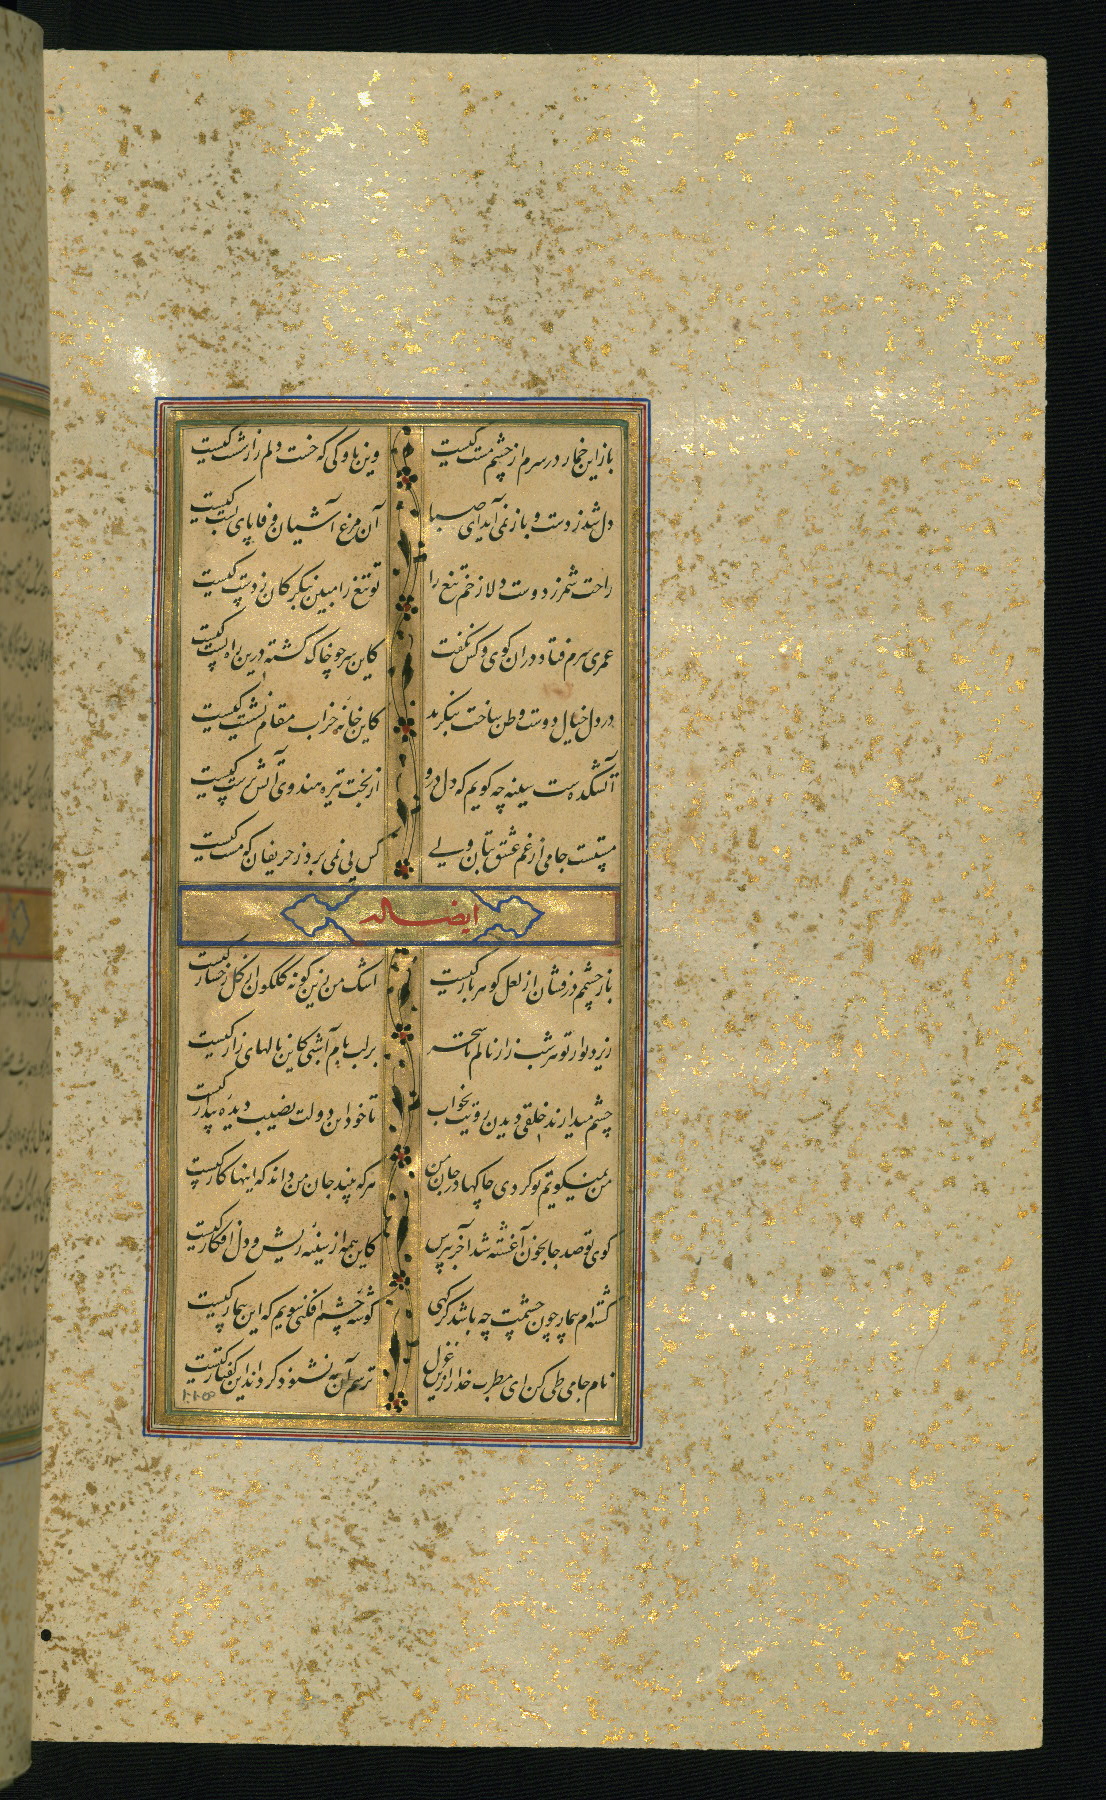 باز این خمار در سرم از چشم مست کیست وین ناوکی که خست دلم را ز شست کیست
دل شد ز دست و باز نمی آید ای صبا آن مرغ آشیان وفا پای بست کیست
راحت شمر ز دوست دلا زخم تیغ را تو تیغ را مبین بنگر کان ز دست کیست
عمری سرم فتاده در آن کوی و کس نگفت کاین سر چو خاک گشته درین راه پست کیست
در دل خیال دوست وطن ساخت بنگرید کاین خانه خراب مقام نشست کیست
آتشکده ست سینه چه گویم که دل درو از بخت تیره هندوی آتش پرست کیست
مستست جامی از غم عشق بتان ولی کس پی نمی برد ز حریفان که مست کیست
ایضا له
باز چشمم درفشان از لعل گوهربار کیست اشک من زین گونه گلگون از گل رخسار کیست
زیر دیوار تو هر شب زار نالم تا سحر بر لب بام آ شبی کاین نالهای زار کیست
چشم میدارند خلقی دیدن رویت بخواب تا خود این دولت نصیب دیده بیدار کیست
من نمیگویم تو کردی چاکها در جان من هر که بیند جان من داند که اینها کار کیست
کوی تو صد جا بخون آغشته شد آخر بپرس کاین همه از سینه ریش و دل افگار کیست
گشته ام بیمار چون چشمت چه باشد گر گهی گوشه چشم افکنی سویم که این بیمار کیست
نام جامی طی کن ای مطرب خدا را زین غزل ترسم آن مه نشنود گر داند این گفتار کیست